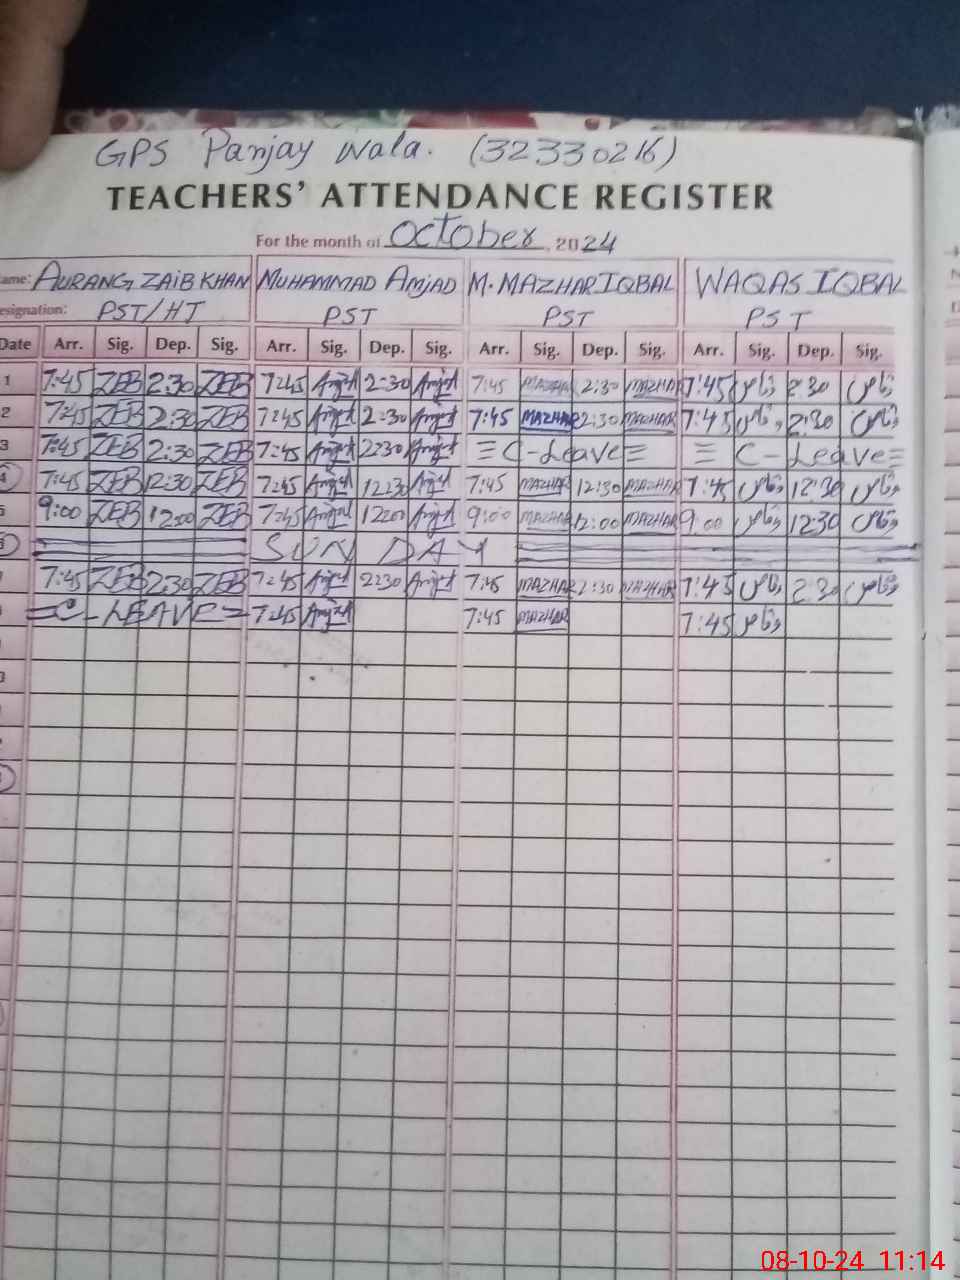 GPS Panjay Wala. (32330216)
TEACHERS' ATTENDANCE REGISTER
For the month of October, 2024
ame: AURANG ZAIB KHAN MUHAMMAD AMJAD M. MAZHAR IQBAL WAQAS IQBAL
esignation: PST/HT PST PST PST
Date Arr. Sig. Dep. Sig. Arr. Sig. Dep. Sig. Arr. Sig. Dep. Sig. Arr. Sig. Dep. Sig.
1 7:45 ZEB 2:30 ZEB 7:45 Amjad 2:30 Amjad 7:45 MAZHAR 2:30 MAZHAR 7:45 وقاص 2:30 وقاص
2 7:45 ZEB 2:30 ZEB 7:45 Amjad 2:30 Amjad 7:45 MAZHAR 2:30 MAZHAR 7:45 وقاص 2:30 وقاص
3 7:45 ZEB 2:30 ZEB 7:45 Amjad 2:30 Amjad C-Leave C-Leave
4 7:45 ZEB 12:30 ZEB 7:45 Amjad 12:30 Amjad 7:45 MAZHAR 12:30 MAZHAR 7:45 وقاص 12:30 وقاص
5 9:00 ZEB 12:00 ZEB 7:45 Amjad 12:00 Amjad 9:00 MAZHAR 12:00 MAZHAR 9:00 وقاص 12:30 وقاص
6 SUNDAY
7:45 ZEB 2:30 ZEB 7:45 Amjad 2:30 Amjad 7:45 MAZHAR 2:30 MAZHAR 7:45 وقاص 2:30 وقاص
C-LEAVE 7:45 Amjad 7:45 MAZHAR 7:45 وقاص
08-10-24 11:14